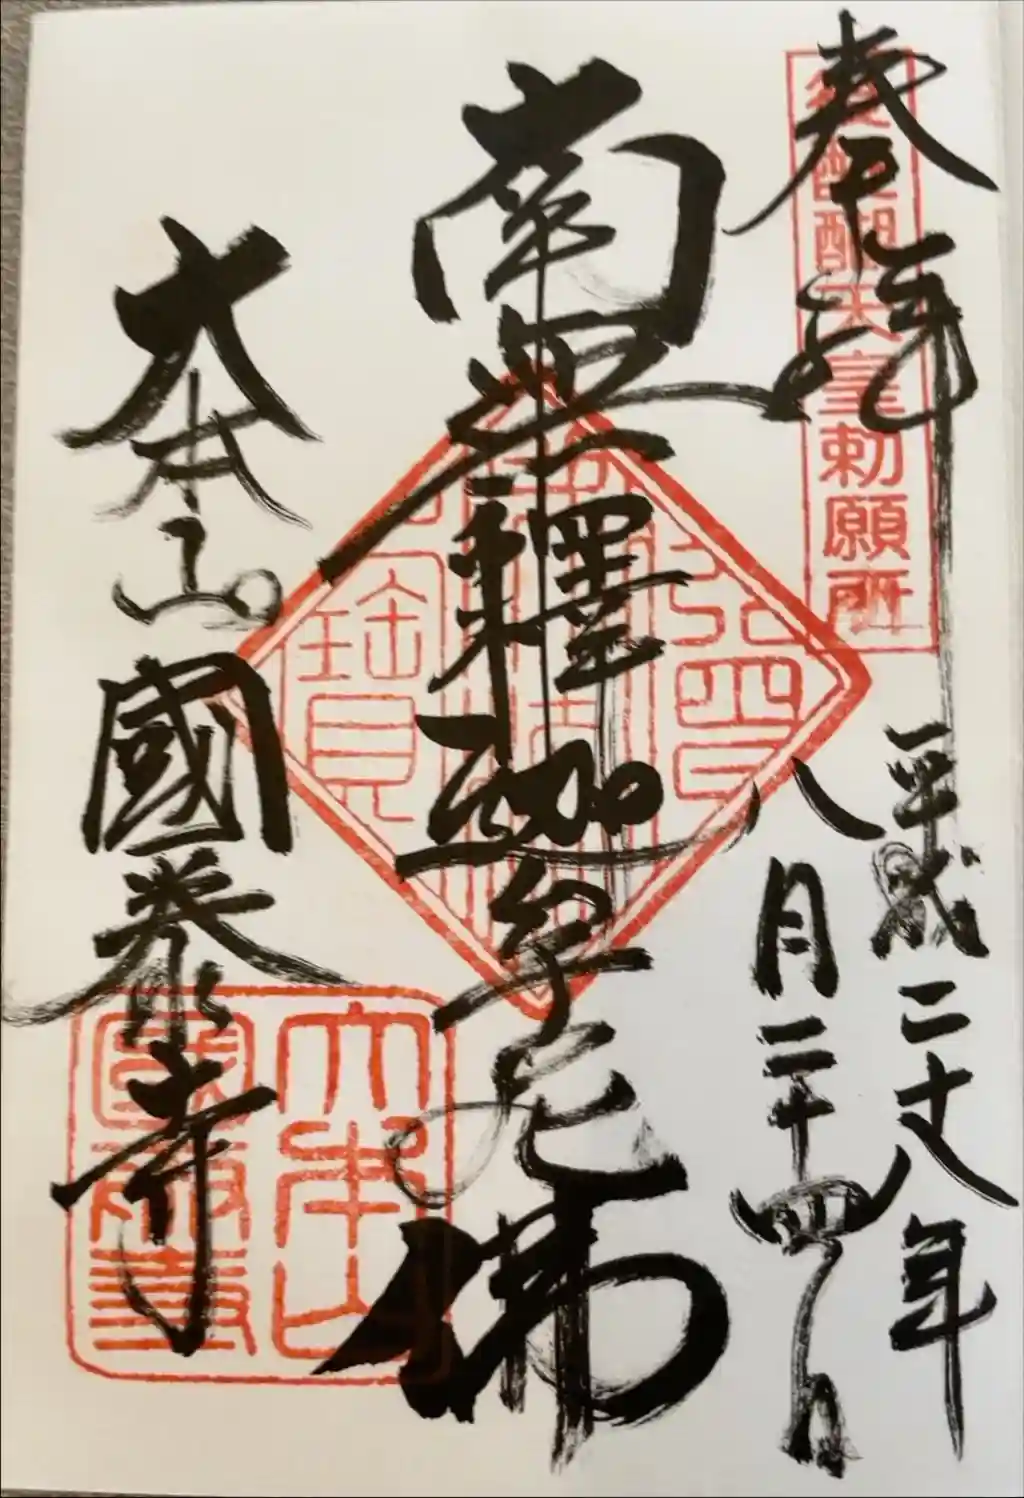 奉拝
後醍醐天皇勅願所
平成二十八年
八月二十四日
南無釋迦牟尼佛
大本山
國泰寺
大本山
國泰寺